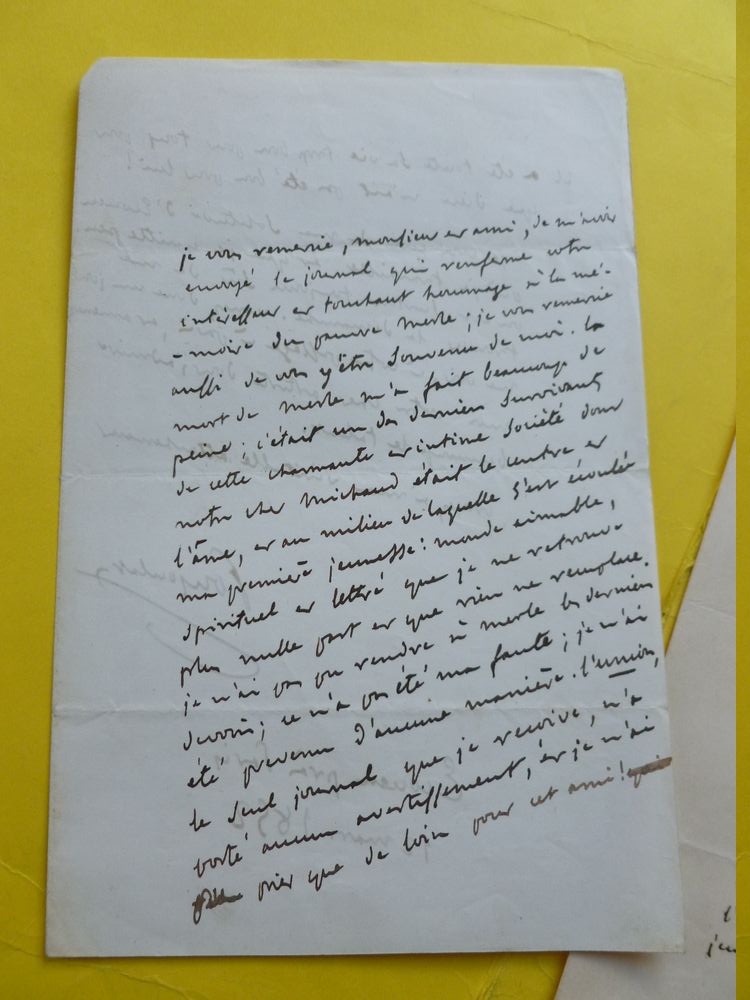 je vous remercie, monsieur et ami, de m'avoir
envoyé le journal qui renferme votre
intéressant et touchant hommage à la mé-
-moire du pauvre Merle ; je vous remercie
aussi de vous y être souvenu de moi. la
mort de Merle m'a fait beaucoup de
peine ; c'était un des derniers survivants
de cette charmante et intime société dont
notre cher Michaud était le centre et
l'âme, et au milieu de laquelle s'est écoulée
ma première jeunesse : monde aimable,
spirituel et lettré que je ne retrouve
plus nulle part et que rien ne remplace.
je n'ai pas pu rendre à Merle les derniers
devoirs ; ce n'a pas été ma faute ; je n'ai
été prévenu d'aucune manière. l'union,
le seul journal que je reçoive, n'a
porté aucun avertissement, et je n'ai
prier que de loin pour cet ami !